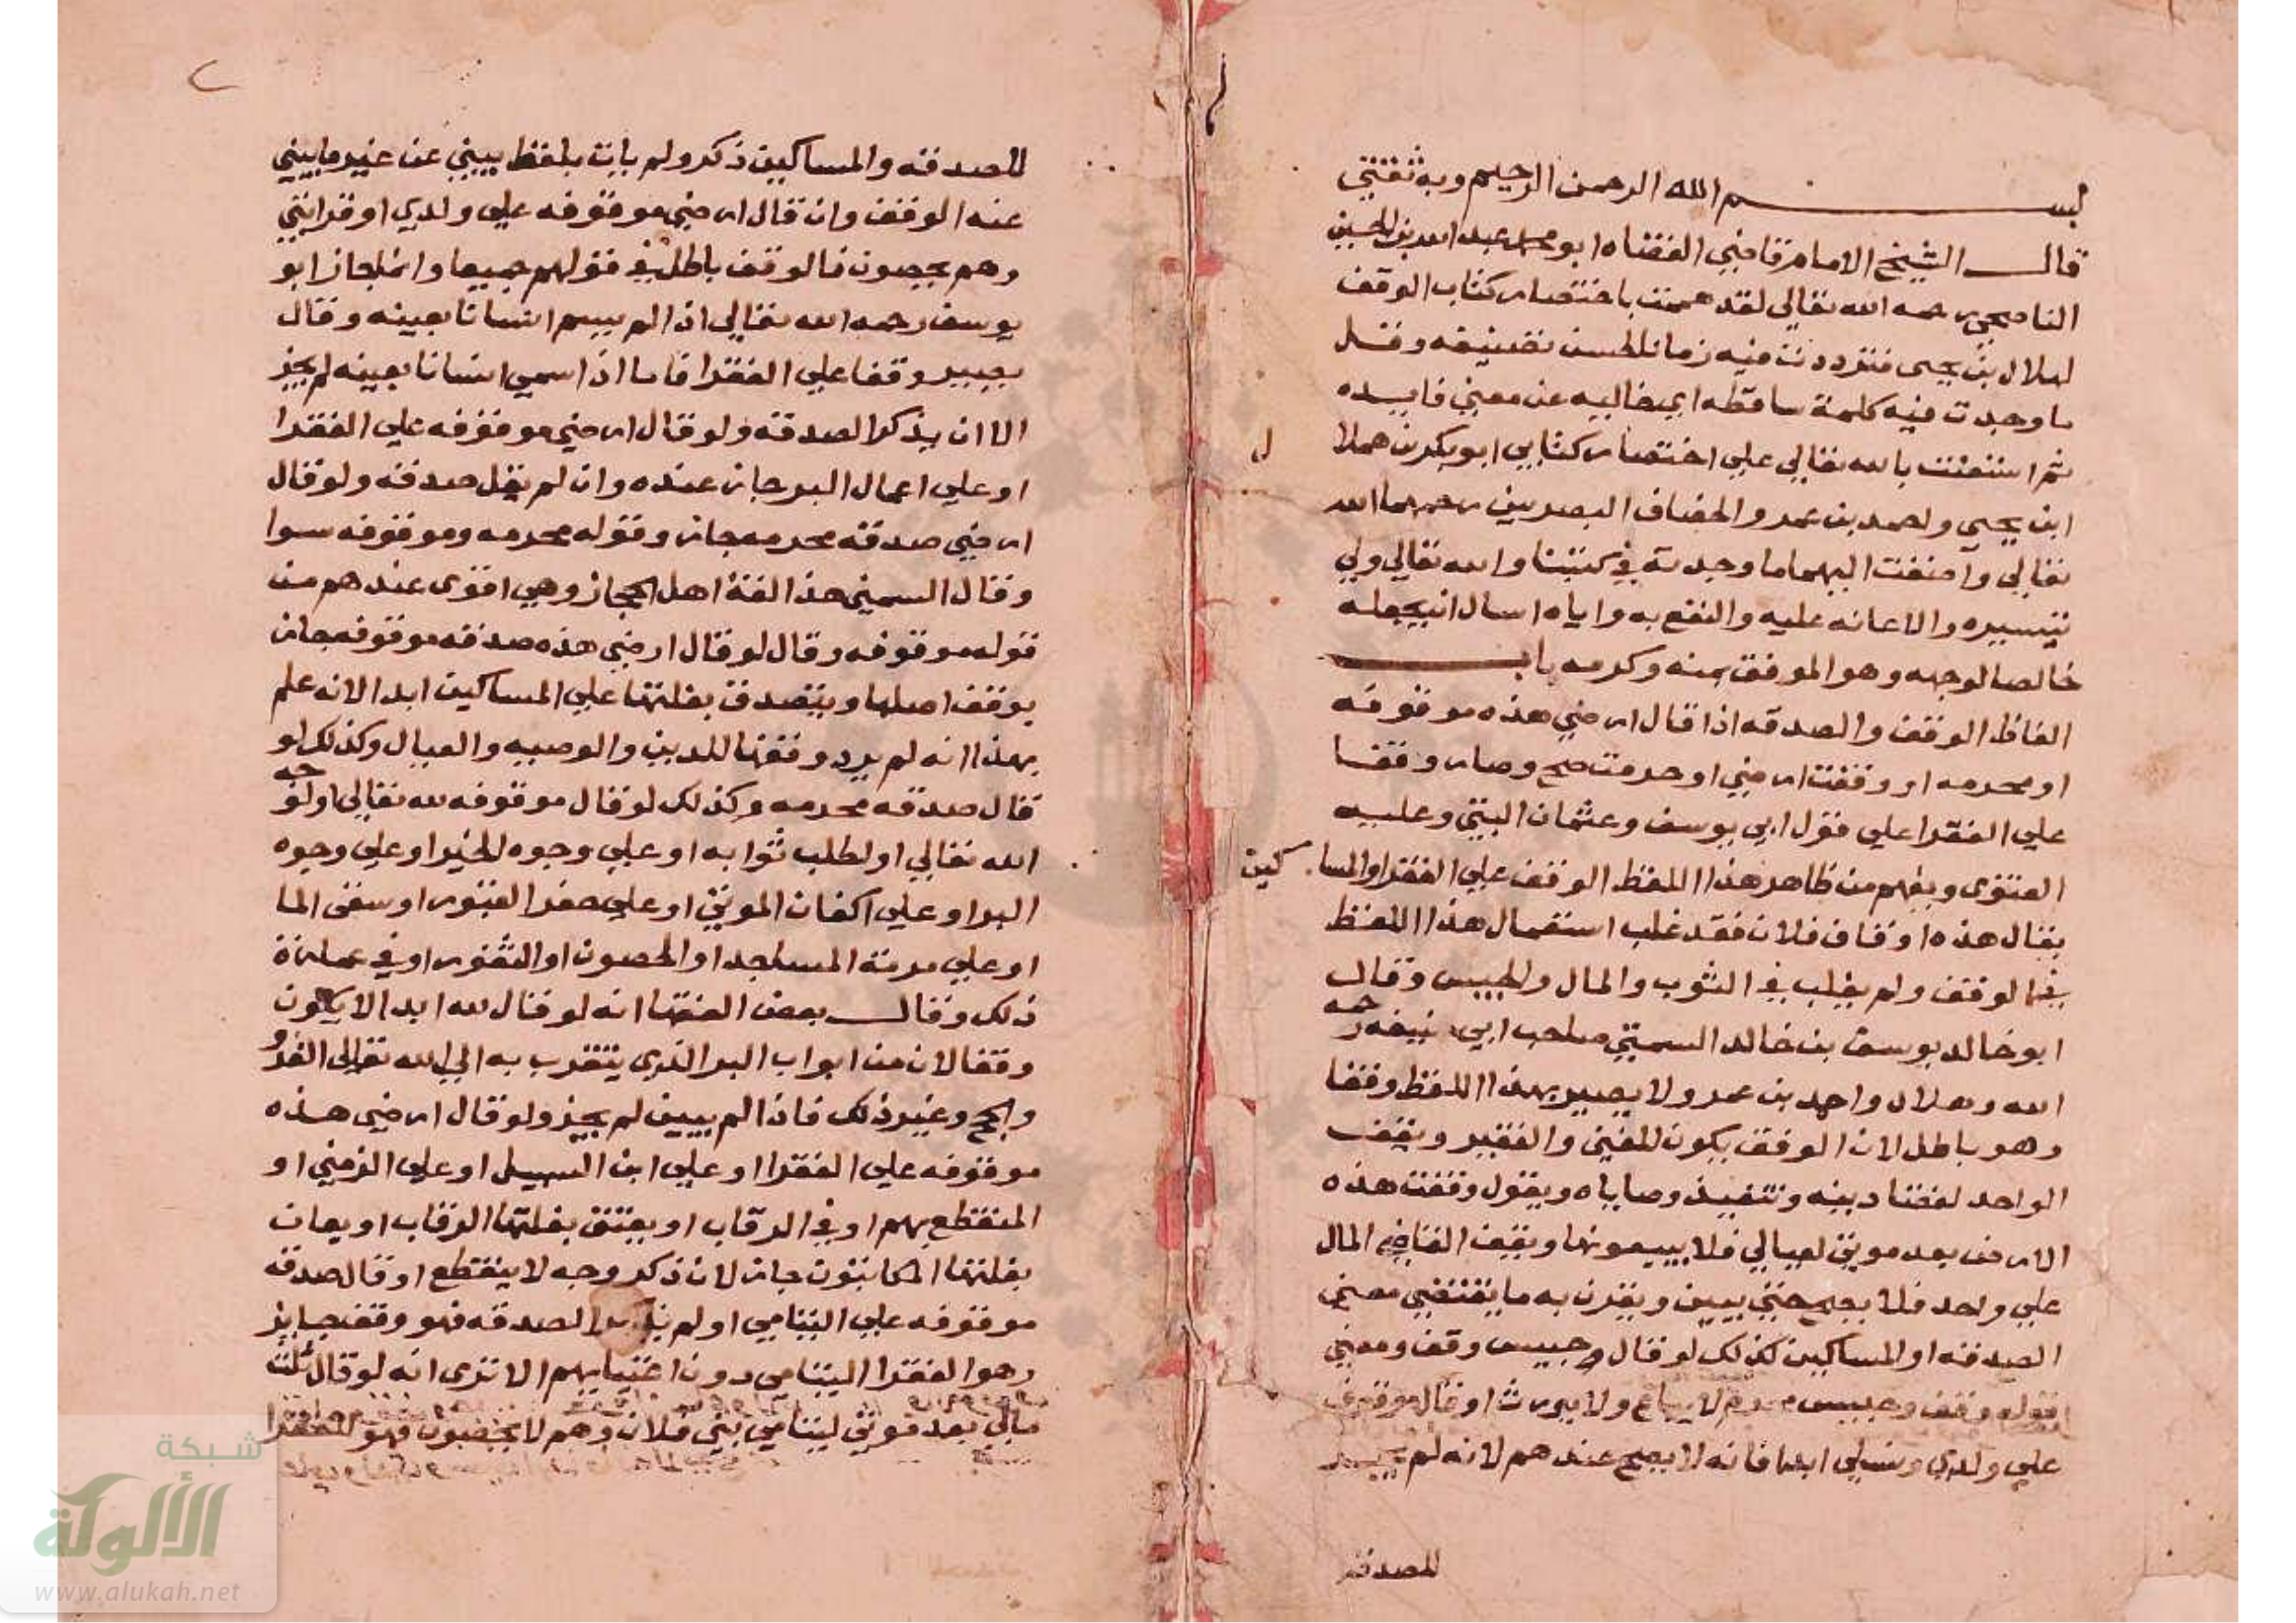 بسم الله الرحمن الرحيم وبه ثقتي
قال الشيخ الامام قاضي القضاه ابو محمد عبد الله بن الحسين
الناصحي رحمه الله تعالي لقد هممت باختصار كتاب الوقف
لهلال بن يحيى فترددت فيه زمانا لحسن تصنيفه وقل
ما وجدت فيه كلمة ساقطه اي خاليه عن معني فايده
ثم استعنت بالله تعالي علي اختصار كتابي ابو بكر بن هملا
ابن يحيى واحمد بن عمرو الخصاف البصريين رحمهما الله
تعالي وأضفت اليهما ما وجدته في كتبنا والله تعالي ولي
تيسيره والاعانه عليه والنفع به واياه اسال ان يجعله
خالصا لوجهه وهو الموفق بمنه وكرمه باب
الفاظ الوقف والصدقه اذا قال ارضي هذه موقوفه
او محرمه او وقفت ارضي او حرمت صح وصار وقفا
علي الفقرا علي قول ابي يوسف وعثمان البتي وعليه
الفتوى ويفهم من ظاهر هذا اللفظ الوقف علي الفقرا والمساكين
يقال هذه اوقاف فلان فقد غلب استعمال هذا اللفظ
في الوقف ولم يغلب في الثوب والمال والحبيس وقال
ابو خالد يوسف بن خالد السمتي صاحب ابي حنيفه رحمه
الله وهلال واحمد بن عمرو لا يصير بهذا اللفظ وقفا
وهو باطل لان الوقف يكون للغني والفقير ويقف
الواحد لقضا دينه وتنفيذ وصاياه ويقول وقفت هذه
الارض بعد موتي لعيالي فلا يبيعونها ويقف القاضي المال
علي واحد فلا يصح حتي يبين ويقرن به ما يقتضي معني
الصدقه او المساكين كذلك لو قال وحبيس وقف ومعني
قوله وقف وحبيس محرم لا يباع ولا يورث او قال موقوف
علي ولدي ونسلي ابدا فانه لا يصح عندهم لانه لم يبين
للصدقه
للصدقه والمساكين ذكر ولم يات بلفظ يبين عن غير ما يبني
عنه الوقف وان قال ارضي موقوفه علي ولدي او قرابتي
وهم يحصون فالوقف باطل في قولهم جميعا وانما جاز ابو
يوسف رحمه الله تعالي اذا لم يسم انسانا بعينه وقال
يصير وقفا علي الفقرا فاما اذا سمي انسانا بعينه لم يجز
الا ان يذكر الصدقه ولو قال ارضي موقوفه علي الفقرا
او علي اعمال البر جاز عنده وان لم يقل صدقه ولو قال
ارضي صدقه محرمه جاز وقوله محرمه وموقوفه سوا
وقال السمتي هذا لغة اهل الحجاز وهي اقوى عندهم من
قوله موقوفه وقال لو قال ارضي هذه صدقه موقوفه جاز
يوقف اصلها ويتصدق بغلتها علي المساكين ابدا لانه علم
بهذا انه لم يرد وقفها للدين والوصيه والعيال وكذلك لو
قال صدقه محرمه وكذلك لو قال موقوفه لله تعالي او لوجه
الله تعالي او لطلب ثوابه او علي وجوه الخير او علي وجوه
البر او علي اكفان الموتي او علي حفر القبور او سقي الما
او علي مرمة المساجد او الحصون او الثغور او في عمارة
ذلك وقال بعض الفقها انه لو قال لله ابدا لا يكون
وقفا لان من ابواب البر الذي يتقرب به الي الله تعالي الغزو
والحج وغير ذلك فاذا لم يبين لم يجز ولو قال ارضي هذه
موقوفه علي الفقرا او علي ابن السبيل او علي الزمني او
المنقطع بهم او في الرقاب او يعتق بغلتها الرقاب او يعان
بغلتها المكاتبون جاز لان ذكر وجه لا ينقطع او قال صدقه
موقوفه علي اليتامي او لم يذكر الصدقه فهو وقف جايز
وهو الفقرا اليتامي دون اغنيايهم الا ترى انه لو قال ثلث
مالي بعد موتي ليتامي بني فلان وهم لا يحصون فهو للفقرا
شبكة
الألوكة
www.alukah.net